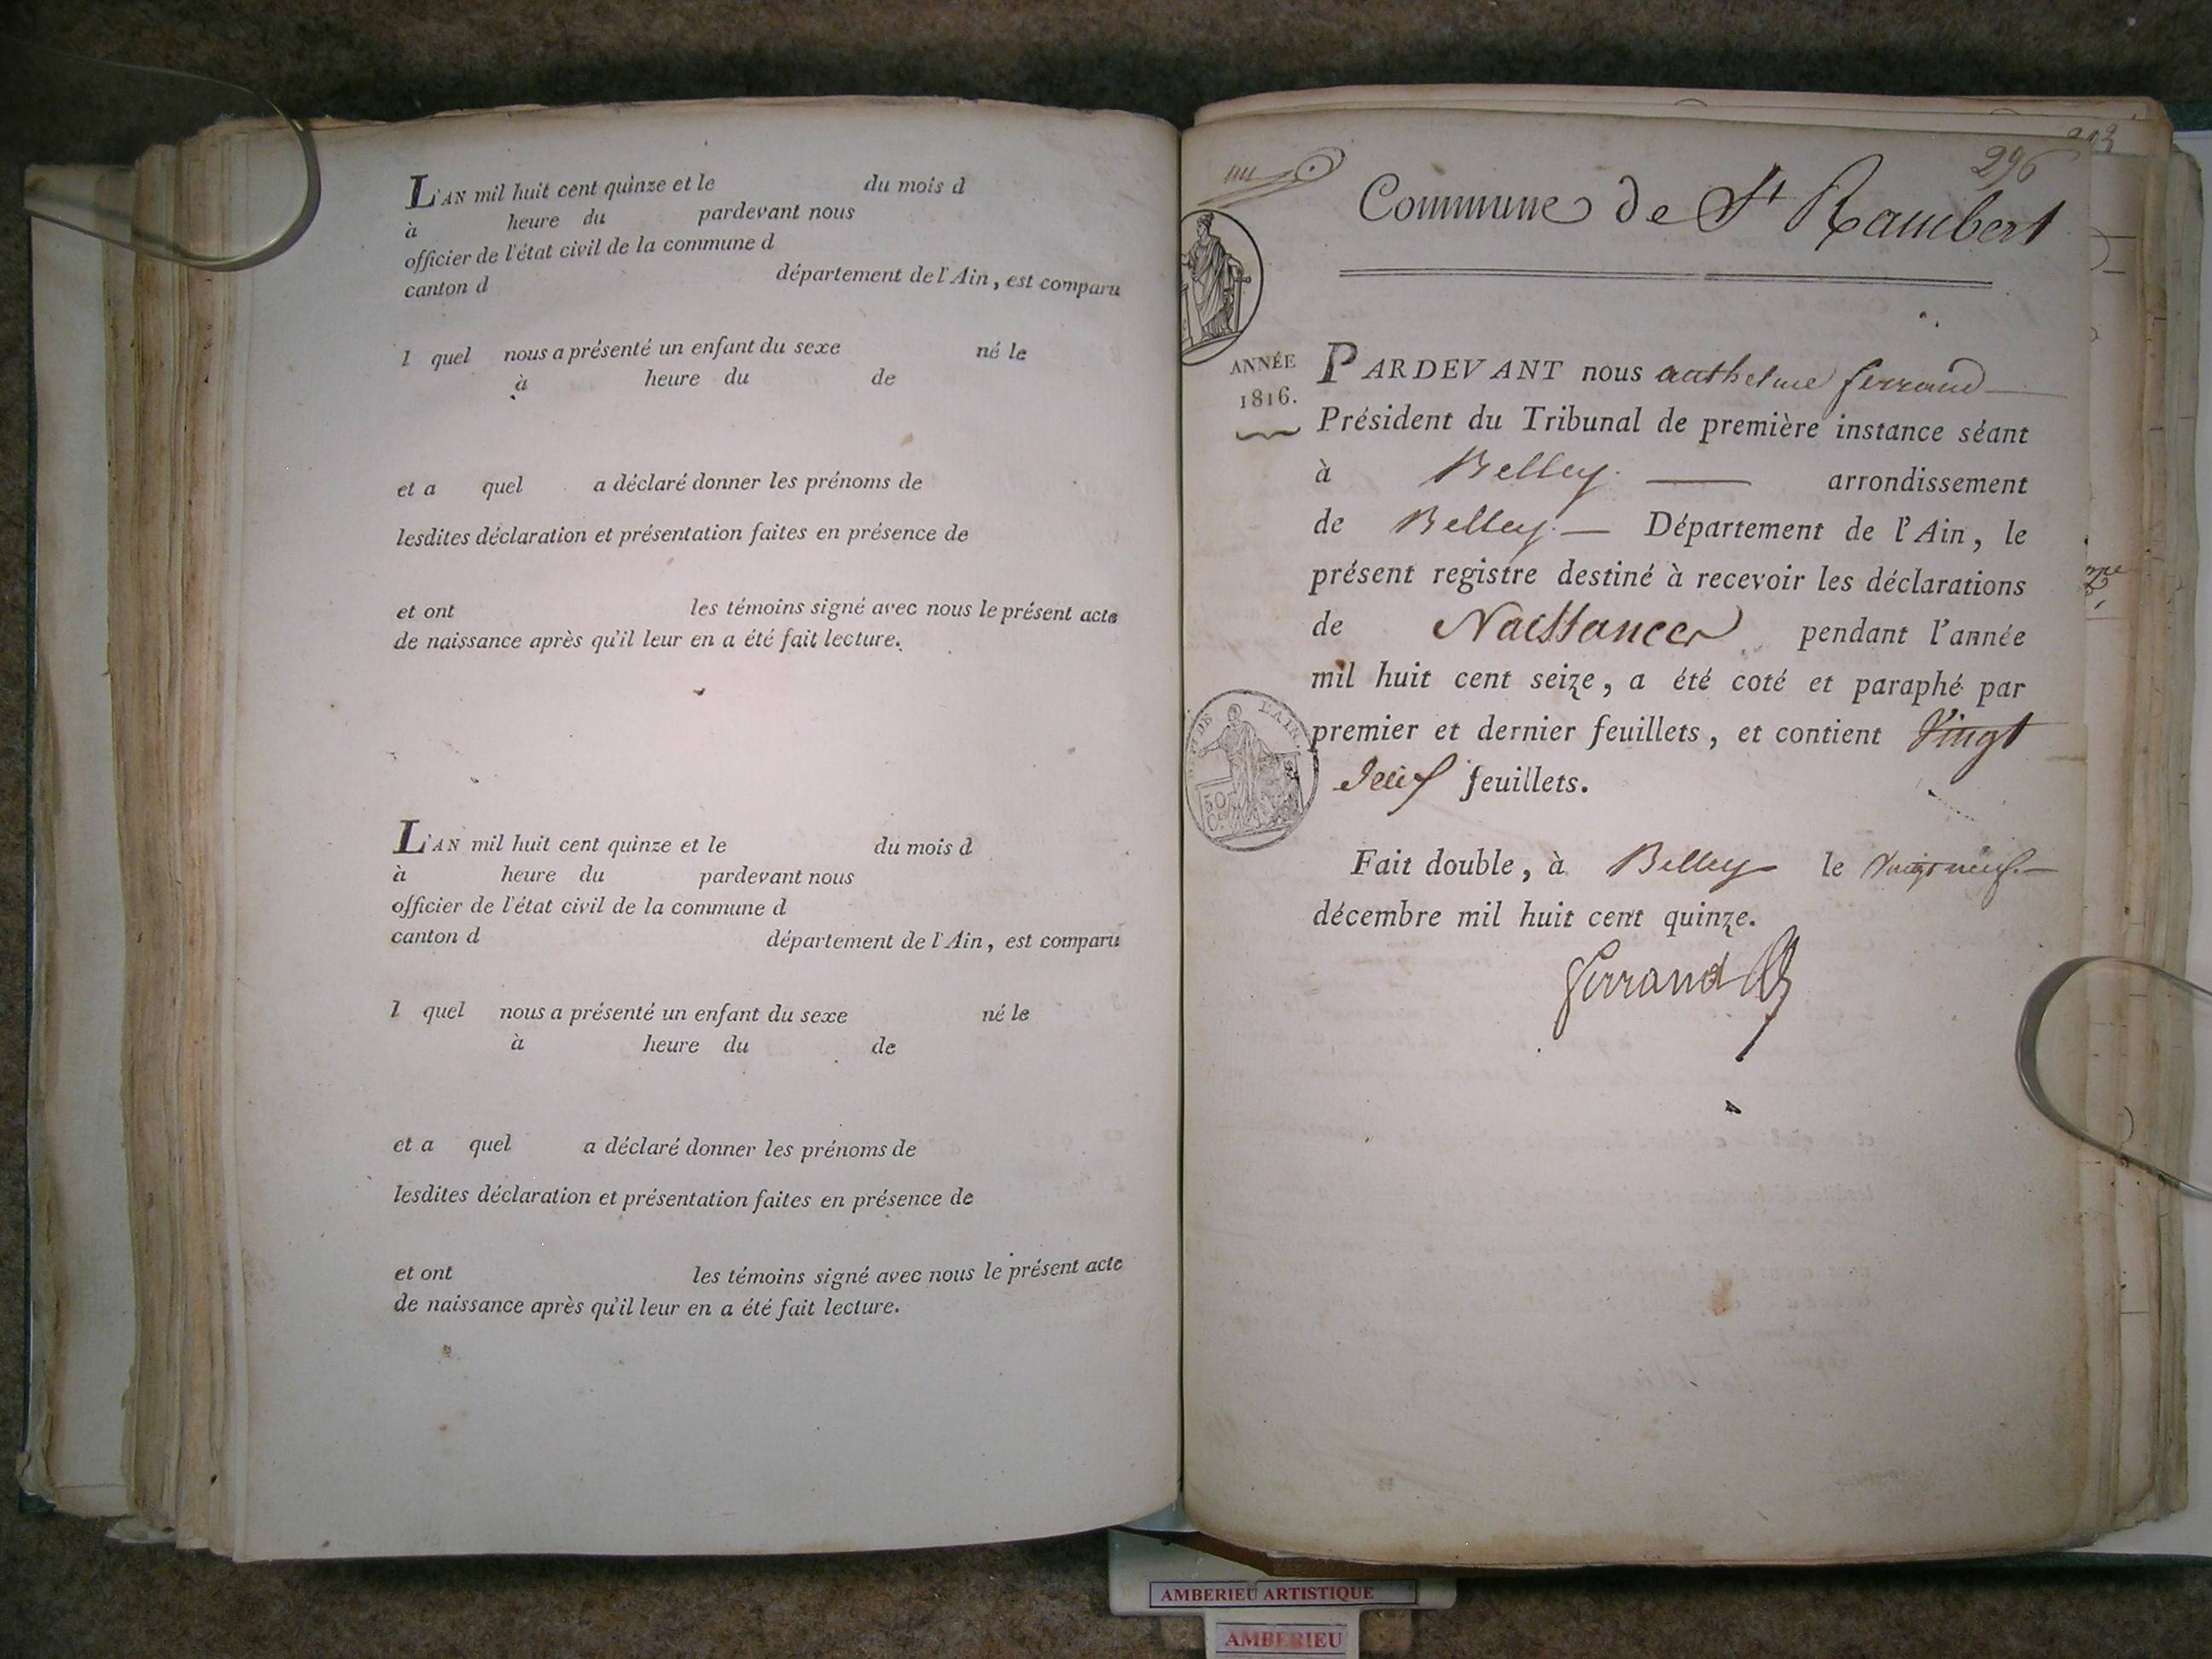 L'AN mil huit cent quinze et le du mois d
à heure du pardevant nous
officier de l'état civil de la commune d
canton d département de l'Ain, est comparu
l quel nous a présenté un enfant du sexe né le
à heure du de
et a quel a déclaré donner les prénoms de
lesdites déclaration et présentation faites en présence de
et ont les témoins signé avec nous le présent acte
de naissance après qu'il leur en a été fait lecture.
L'AN mil huit cent quinze et le du mois d
à heure du pardevant nous
officier de l'état civil de la commune d
canton d département de l'Ain, est comparu
l quel nous a présenté un enfant du sexe né le
à heure du de
et a quel a déclaré donner les prénoms de
lesdites déclaration et présentation faites en présence de
et ont les témoins signé avec nous le présent acte
de naissance après qu'il leur en a été fait lecture.
296
Commune de St Rambert
ANNÉE
1816.
PARDEVANT nous anthelme ferrand
Président du Tribunal de première instance séant
à Belley. arrondissement
de Belley. Département de l'Ain, le
présent registre destiné à recevoir les déclarations
de Naissances pendant l'année
mil huit cent seize, a été coté et paraphé par
premier et dernier feuillets, et contient Vingt
neuf feuillets.
Fait double, à Belley le Vingt neuf.
décembre mil huit cent quinze.
ferrand
50
AMBERIEU ARTISTIQUE
AMBERIEU